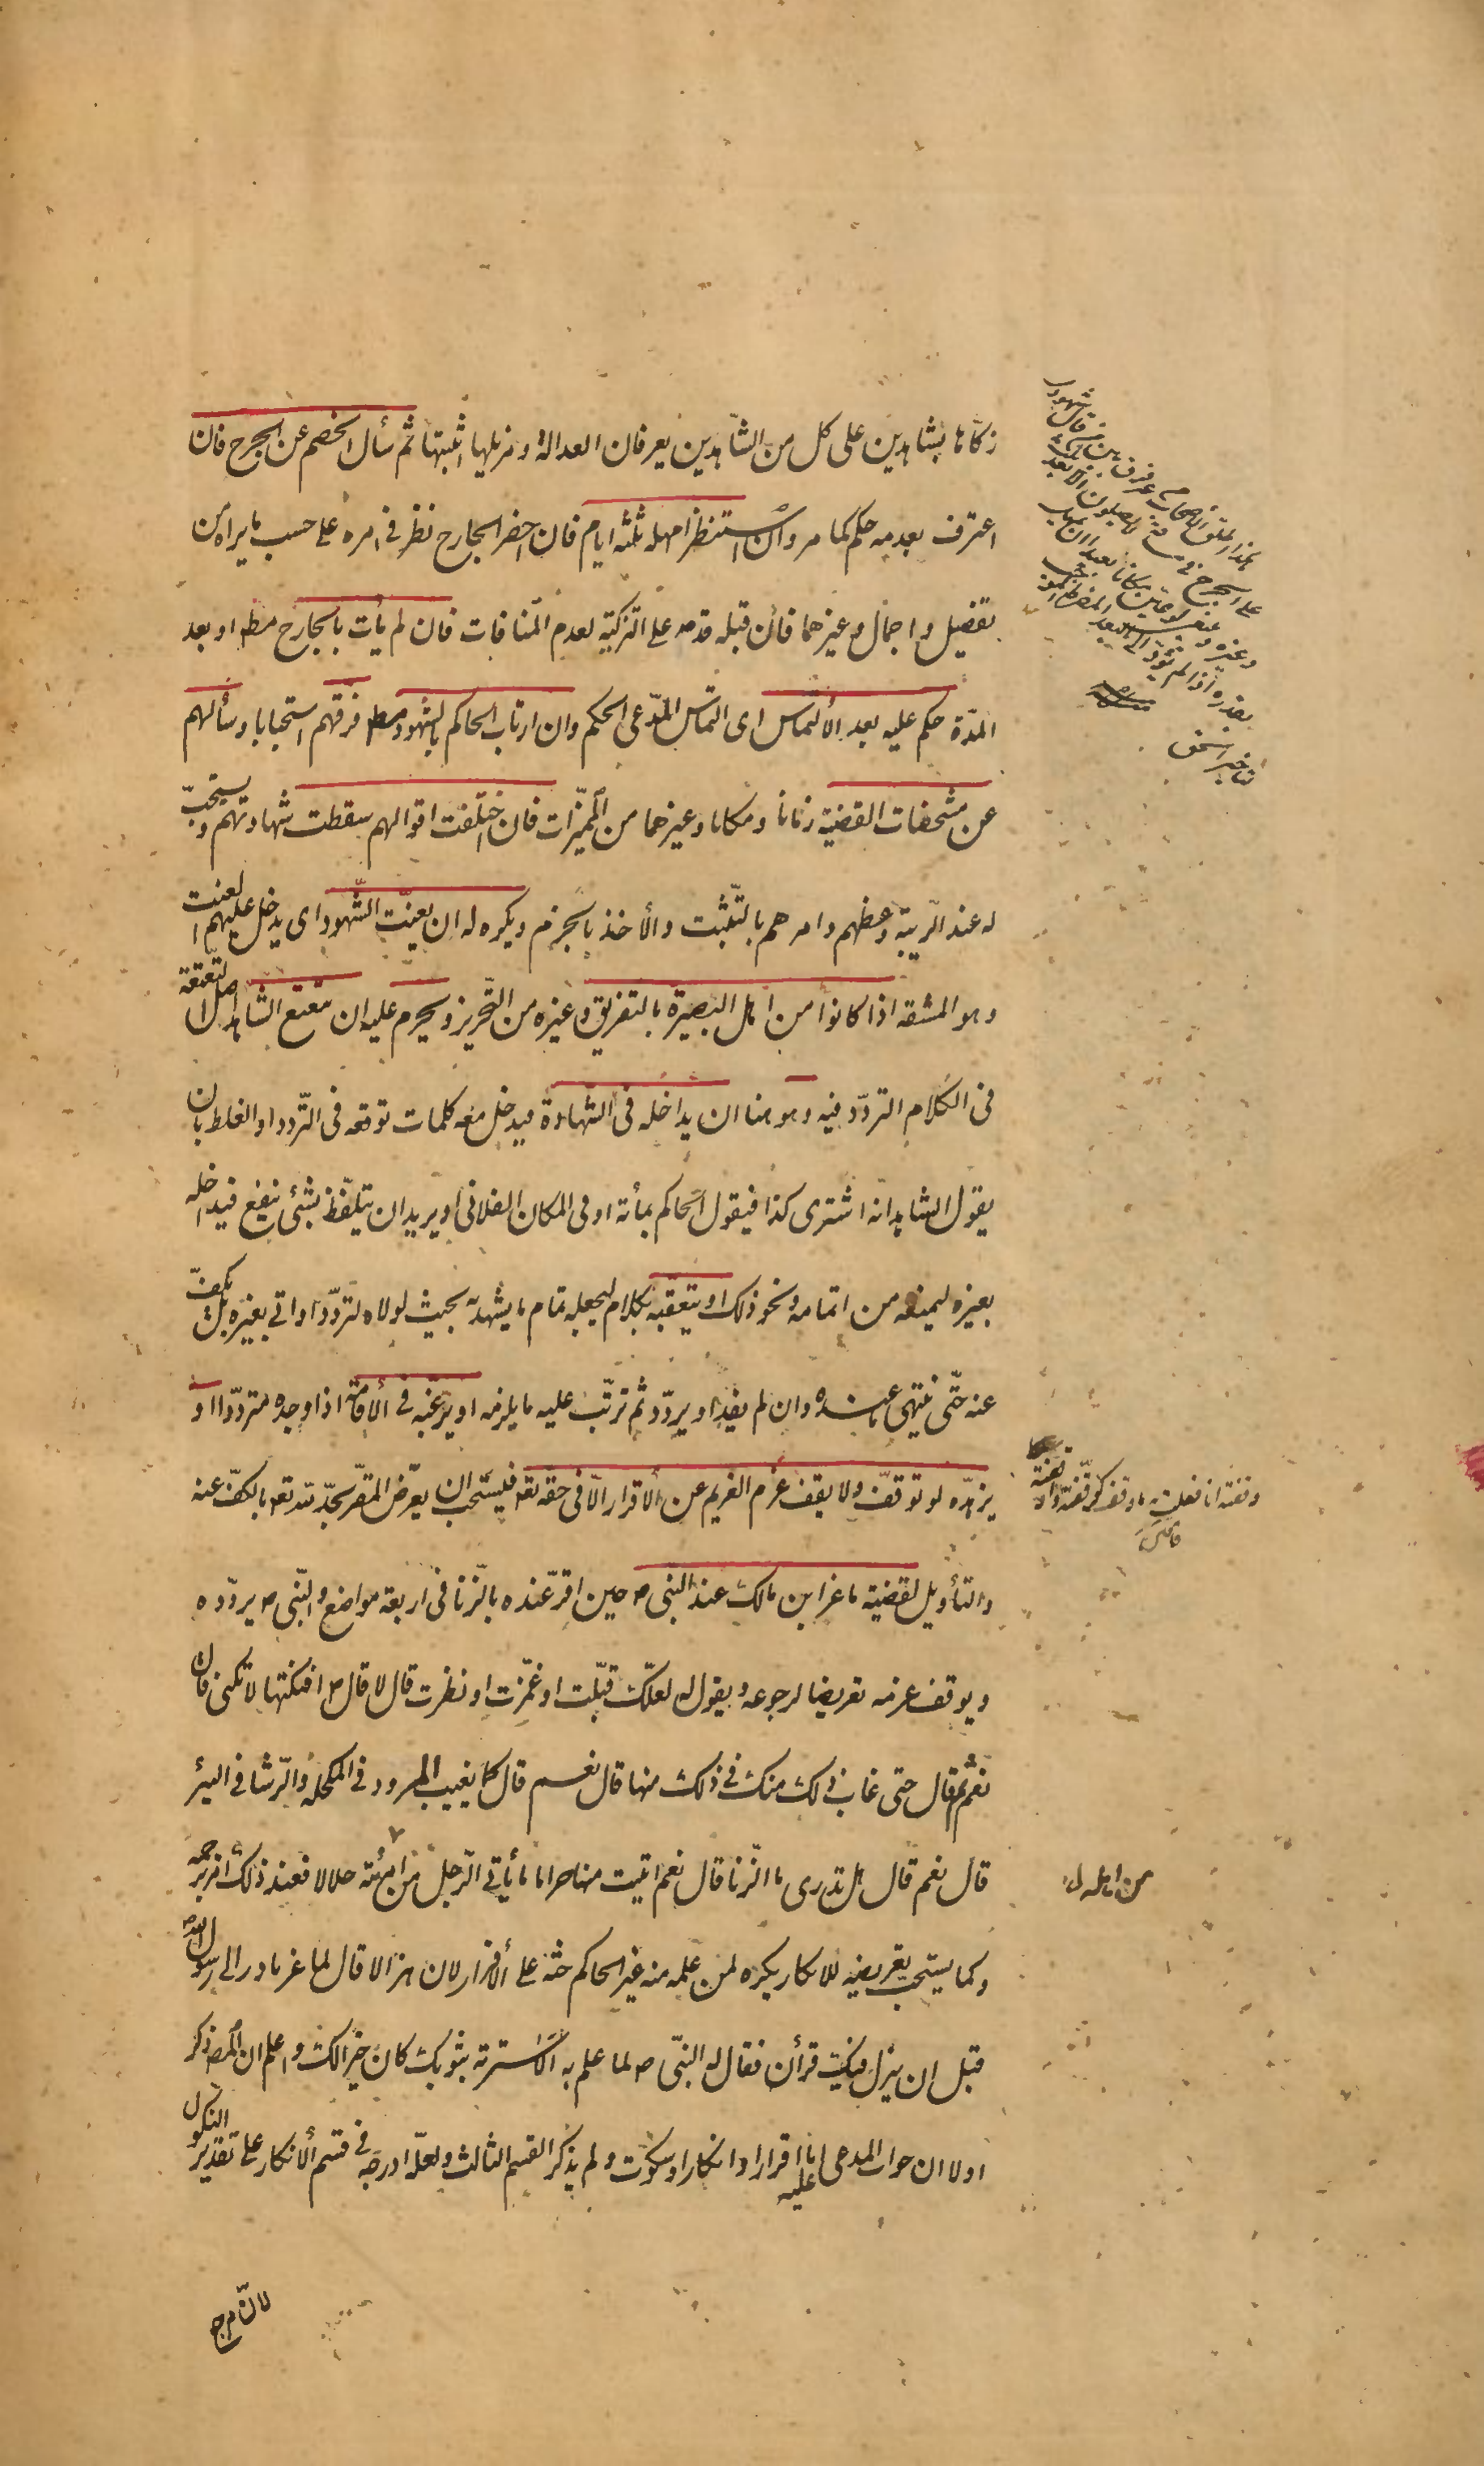 زكاها بشاهدين على كل من الشاهدين يعرفان العدالة ومزيلها اثبتها ثم سأل الخصم عن الجرح فان
اعترف بعدمه حكم كما مر وان استنظر امهله ثلثة ايام فان احضر الجارح نظر في امره على حسب ما يراه من
تفصيل واجمال وغيرهما فان قبله قدمه على التزكية لعدم المنافات فان لم يأت بالجارح مطه او بعد
المدة حكم عليه بعد الألتماس اى التماس المدعى الحكم وان ارتاب الحاكم بالشهود مطه فرقهم استحبابا وسألهم
عن مشخصات القضية زمانا ومكانا وغيرهما من المميزات فان اختلفت اقوالهم سقطت شهادتهم ويستحب
له عند الريبة وعظهم وامرهم بالتثبت والأخذ بالجزم ويكره له ان يعنت الشهود اى يدخل عليهم العنت
وهو المشقه اذا كانوا من اهل البصيرة بالتفريق وغيره من التحريز ويحرم عليه ان يتعتع الشاهد اصل التعتعة
فى الكلام التردد فيه وهو هنا ان يداخله فى الشهادة فيدخل معه كلمات توقعه فى التردد او الغلط بان
يقول الشاهد انه اشترى كذا فيقول الحاكم بمأة او فى المكان الفلانى او يريد ان يتلفظ بشئ ينفع فيداخله
بغيره ليمنعه من اتمامه ونحو ذلك او يتعقبه بكلام ليجعله تمام ما يشهد به بحيث لولاه لتردد او اتى بغيره بل يكف
عنه حتى ينتهى ما عنده وان لم يفد او يردد ثم ترتب عليه ما يلزمه او يرغبه فى الأقامة اذا وجده مترددا او
يزهده لو توقف ولا يقف عزم الغريم عن الاقرار الا فى حقه تعه فيستحب ان يعرض المقر بحد لله تعه بالكف عنه
والتأويل لقضية ماعز ابن مالك عند النبى ص حين اقر عنده بالزنا فى اربعة مواضع والنبى ص يردده
ويوقف عزمه تعريضا لرجوعه ويقول له لعلك قبلت او غمزت او نظرت قال لا قال ص افنكتها لا تكنى قال
نعم ثم قال حتى غاب ذلك منك فى ذلك منها قال نعم قال كما يغيب المرود فى المكحلة والرشا فى البئر
قال نعم قال هل تدرى ما الزنا قال نعم اتيت منها حراما ما يأتى الرجل من امرئته حلالا فعند ذلك امر برجمه
وكما يستحب تعريضه للانكار يكره لمن علمه منه غير الحاكم حثه على الأقرار لان هزالا قال لماعز بادر الى رسول الله
قبل ان ينزل فيك قرأن فقال له النبى ص لما علم به الا سترته بثوبك كان خيرا لك واعلم ان المص ذكر
اولا ان جواب المدعى عليه اما اقرار او انكار او سكوت ولم يذكر القسم الثالث ولعله ادرجه فى قسم الأنكار على تقدير النكول
من اهله ل
لان مرج